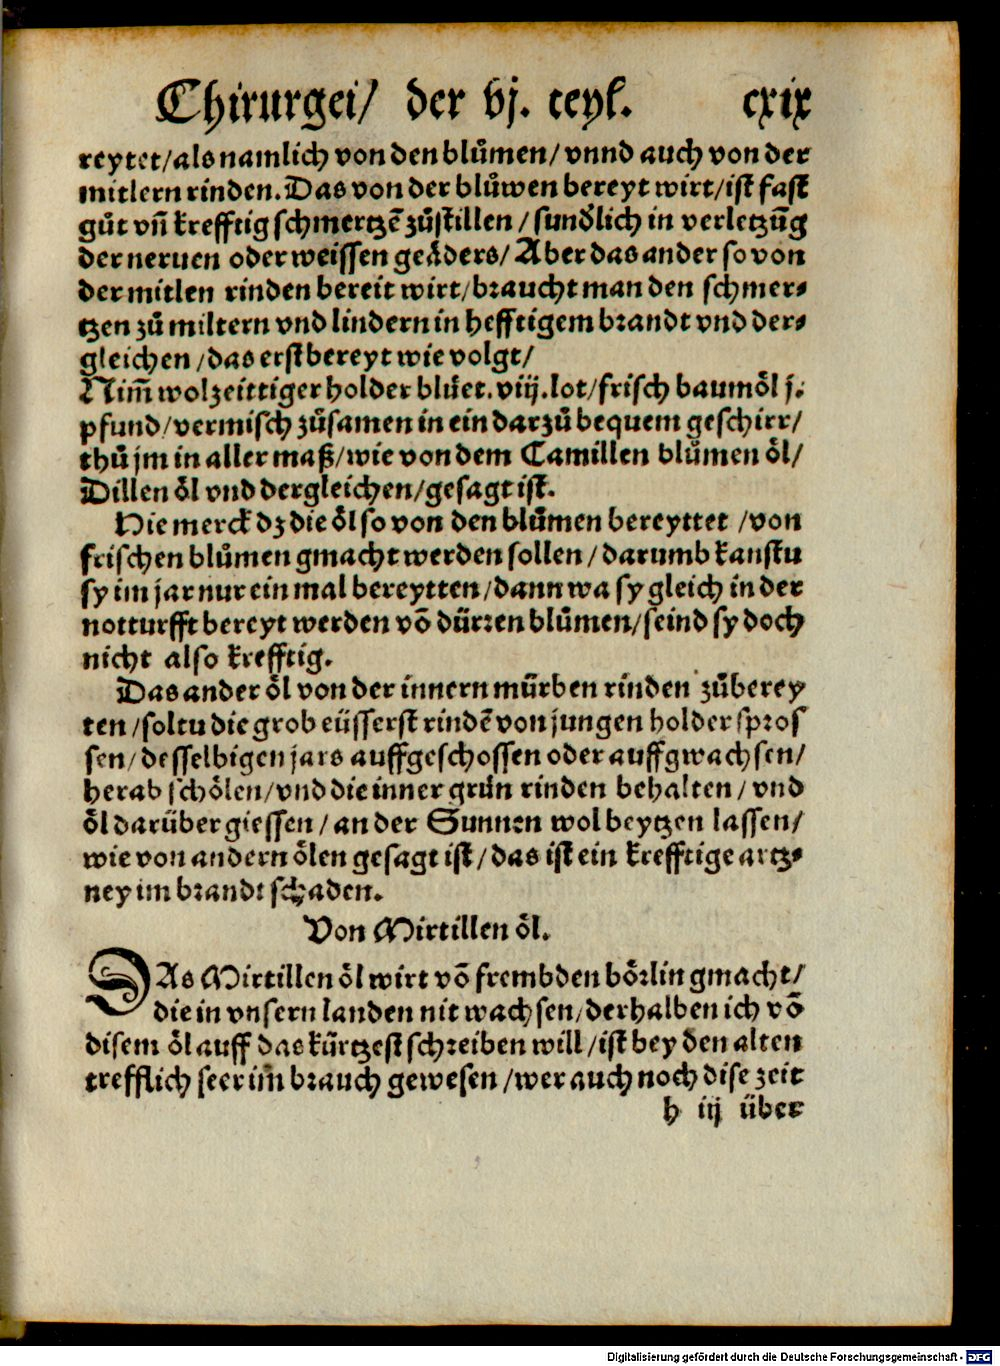 Chirurgei/ der vj. teyl. cxix
reytet/als namlich von den blůmen/vnnd auch von der
mitlern rinden. Das von der blůwen bereyt wirt/ist fast
gůt vñ krefftig schmertzē zůstillen/sunďlich in verletzūg
der neruen oder weissen geåders/Aber das ander so von
der mitlen rinden bereit wirt/braucht man den schmer⸗
tzen zů miltern vnd lindern in hefftigem brandt vnd der⸗
gleichen/das erst bereyt wie volgt/
Nim̃ wolzeittiger holder blůet. viij. lot/frisch baumöl j.
pfund/vermisch zůsamen in ein darzů bequem geschirr/
thů jm in aller maß/wie von dem Camillen blůmen öl/
Dillen öl vnd dergleichen/gesagt ist.
Hie merck dz die öl so von den blůmen bereyttet/von
frischen blůmen gmacht werden sollen/darumb kanstu
sy im jar nur ein mal bereytten/dann wa sy gleich in der
notturfft bereyt werden vō dürren blůmen/seind sy doch
nicht also krefftig.
Das ander öl von der innern mürben rinden zůberey
ten/soltu die grob eüsserst rindē von jungen holder spros
sen/desselbigen jars auffgeschossen oder auffgwachsen/
herab schölen/vnd die inner grůn rinden behalten/vnd
öl darüber giessen/an der Sunnen wol beytzen lassen/
wie von andern ölen gesagt ist/das ist ein krefftige artz⸗
ney im brandt schaden.
Von Mirtillen öl.
DAs Mirtillen öl wirt vō frembden börlin gmacht/
die in vnsern landen nit wachsen/derhalben ich vō
disem öl auff das kürtzest schreiben will/ist bey den alten
trefflich seer im brauch gewesen/wer auch noch dise zeit
h iij über
Digitalisierung gefördert durch die Deutsche Forschungsgemeinschaft - DFG